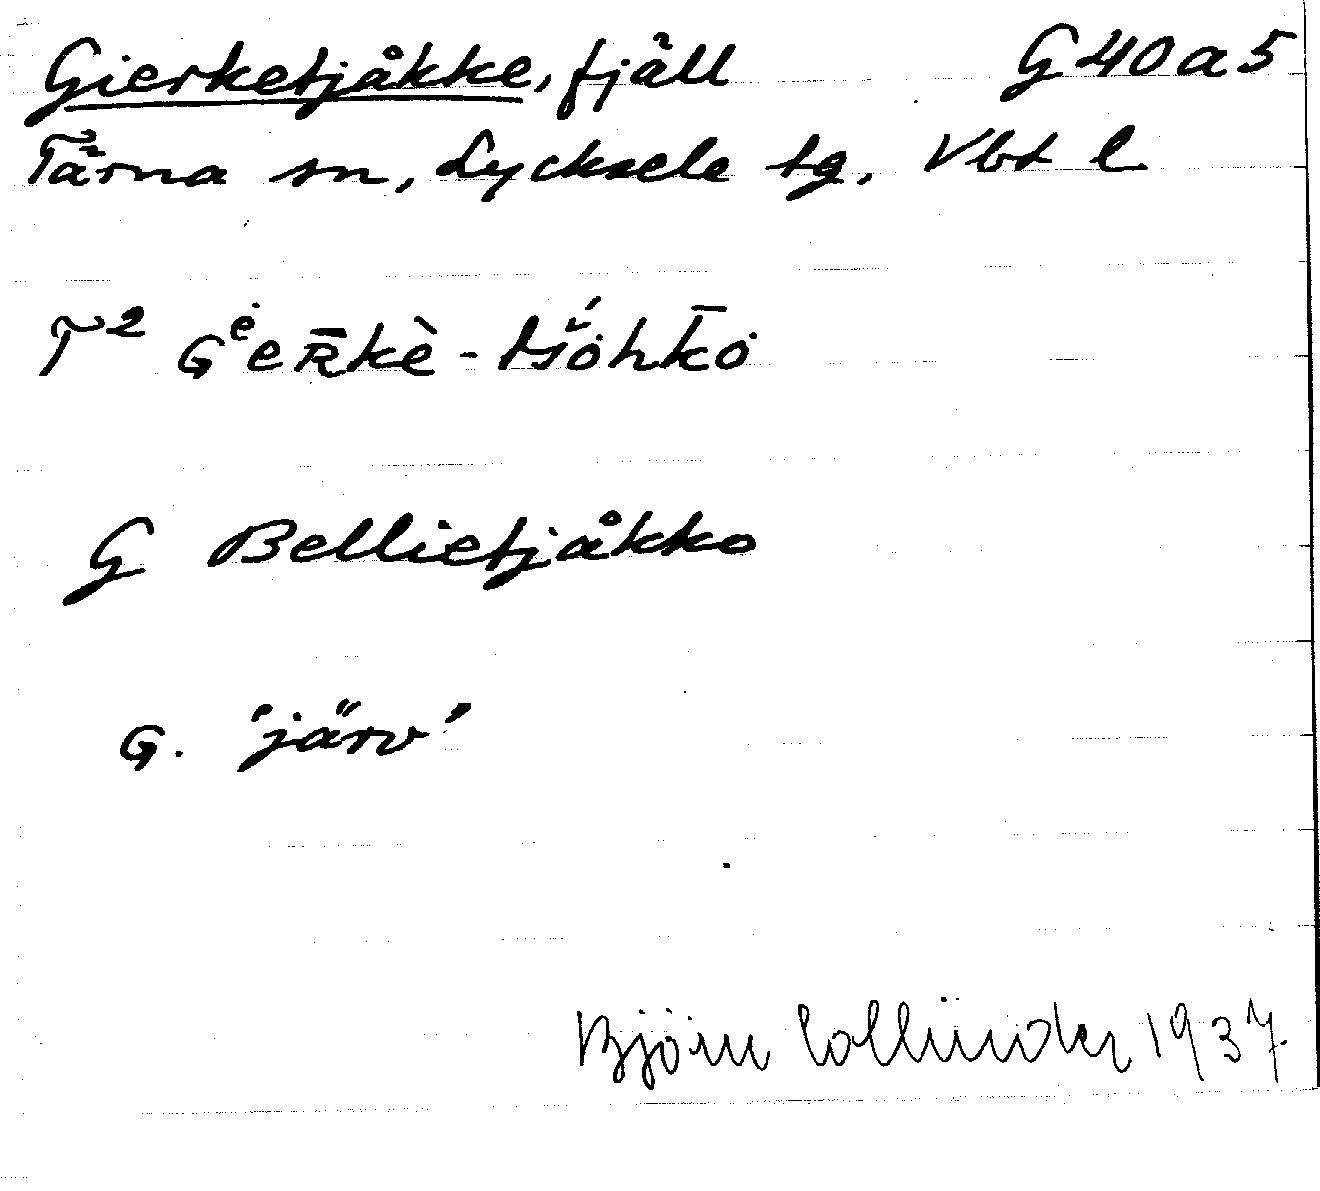 Gierketjåkke, fjäll G 40 a 5
Tärna sn, Lycksele tg. Vbt l
T²
G Bellietjåkko
G. 'järv'
Björn Collinder 1937